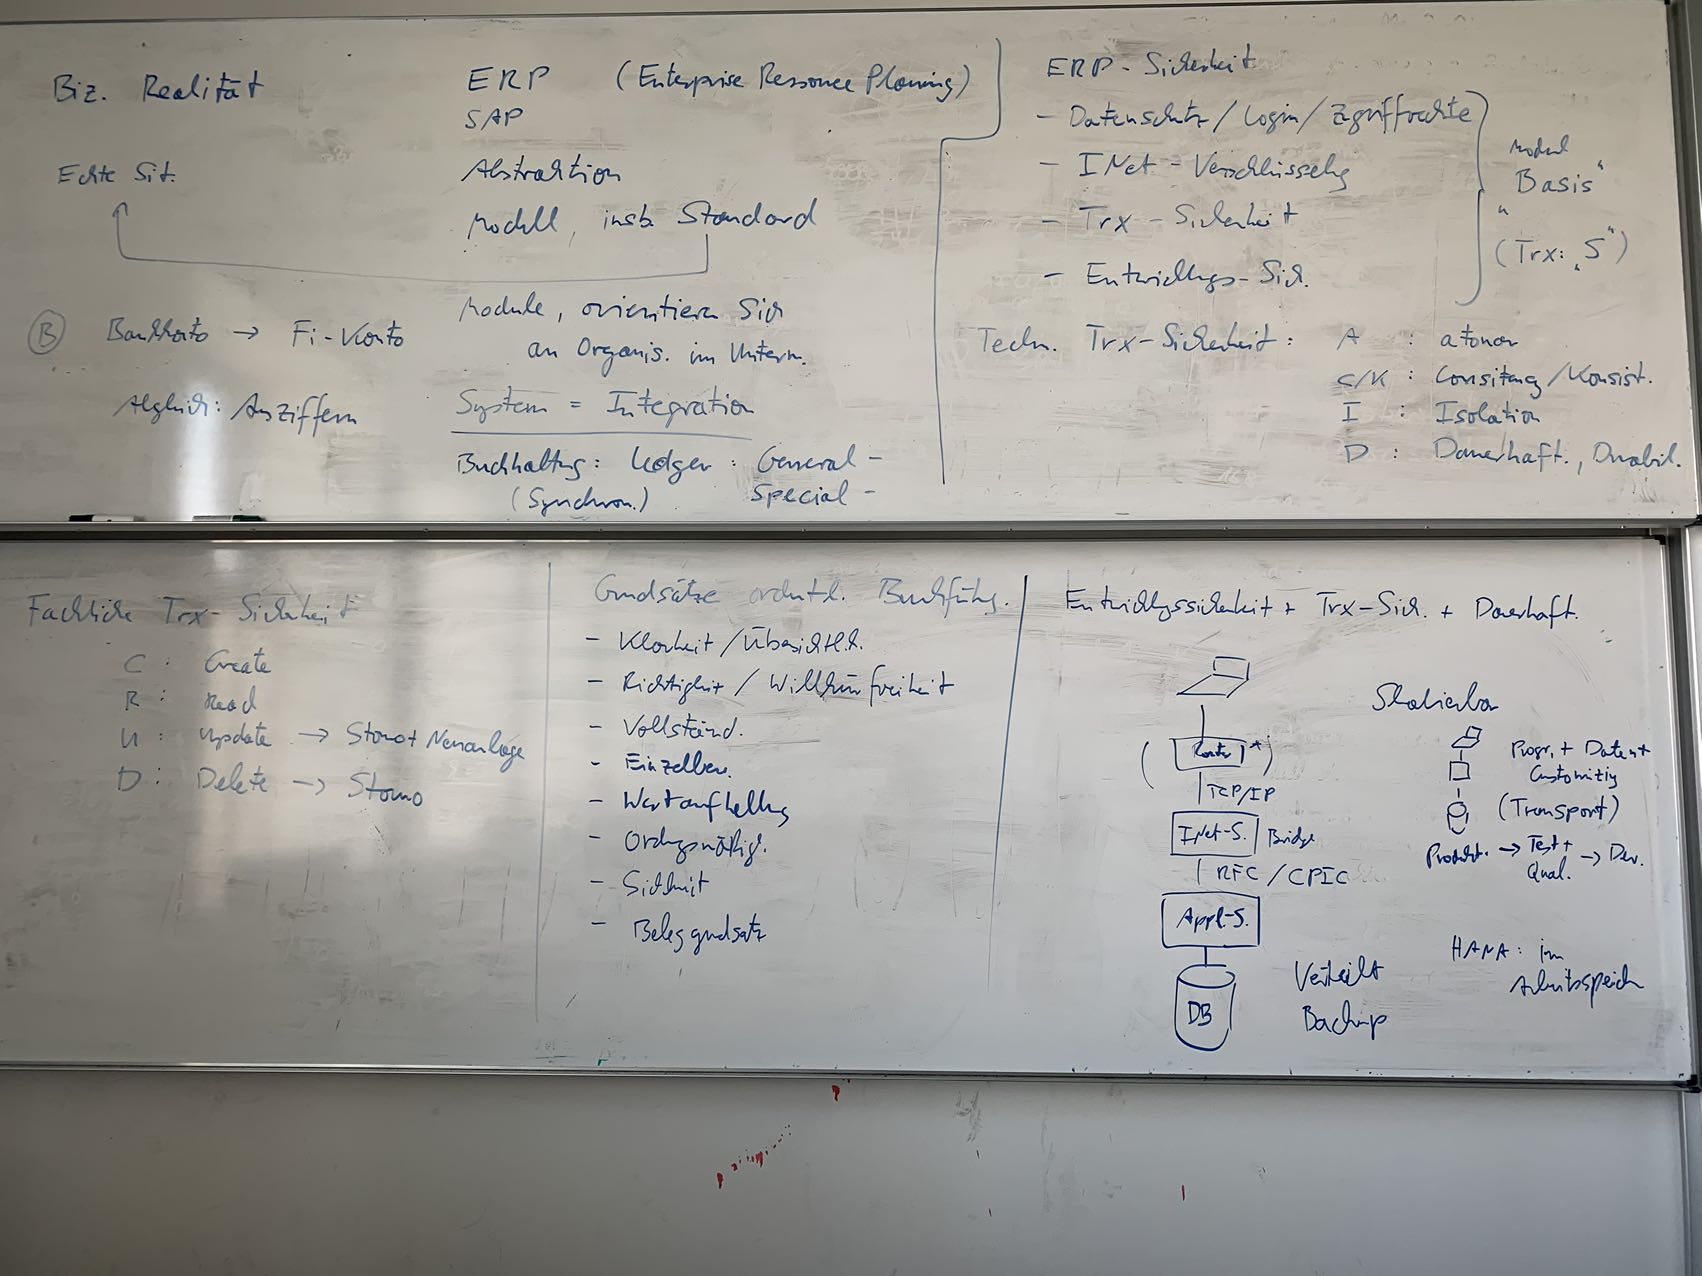 Biz. Realität
Echte Sit.
ERP (Enterprise Ressource Planing)
SAP
Abstraktion
Modell, insb. Standard
B Bankkonto → Fi-Konto
Abgleich: Ausziffern
Module, orientieren sich
an Organis. im Untern.
System = Integration
Buchhaltung: Ledger: General -
(Synchron.) Special -
ERP - Sicherheit
- Datenschutz / Login / Zgriffrechte
- INet - Verschlüsselg
- Trx - Sicherheit
- Entwicklugs - Sich.
Modul
"Basis"
(Trx: „S")
Techn. Trx-Sicherheit:
A : atomar
C/K : Consitency / Konsist.
I : Isolation
D : Dauerhaft., Durabil.
Fachliche Trx-Sicherheit
C : Create
R : Read
U : Update → Storno + Neuanlage
D : Delete → Storno
Grundsätze ordntl. Buchführg.
- Klarheit / Übersichtl.k.
- Richtigkeit / Willkürfreiheit
- Vollständ.
- Einzelbew.
- Wertaufhellug
- Ordngsmäßig.
- Sicherheit
- Beleggrundsatz
Entwicklgssicherheit + Trx-Sich. + Dauerhaft.
(Router *)
TCP/IP
INet-S. Bridge
RFC / CPIC
Appl.-S.
DB
Verteilt
Backup
Skalierbar
Progr. + Daten +
Customizig
(Transport)
Produkt. → Test + Qual. → Dev.
HANA: im
Arbeitsspeich